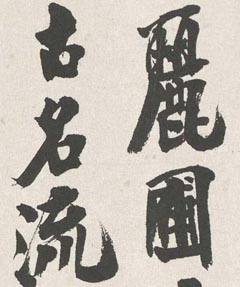 麗圃
古名流